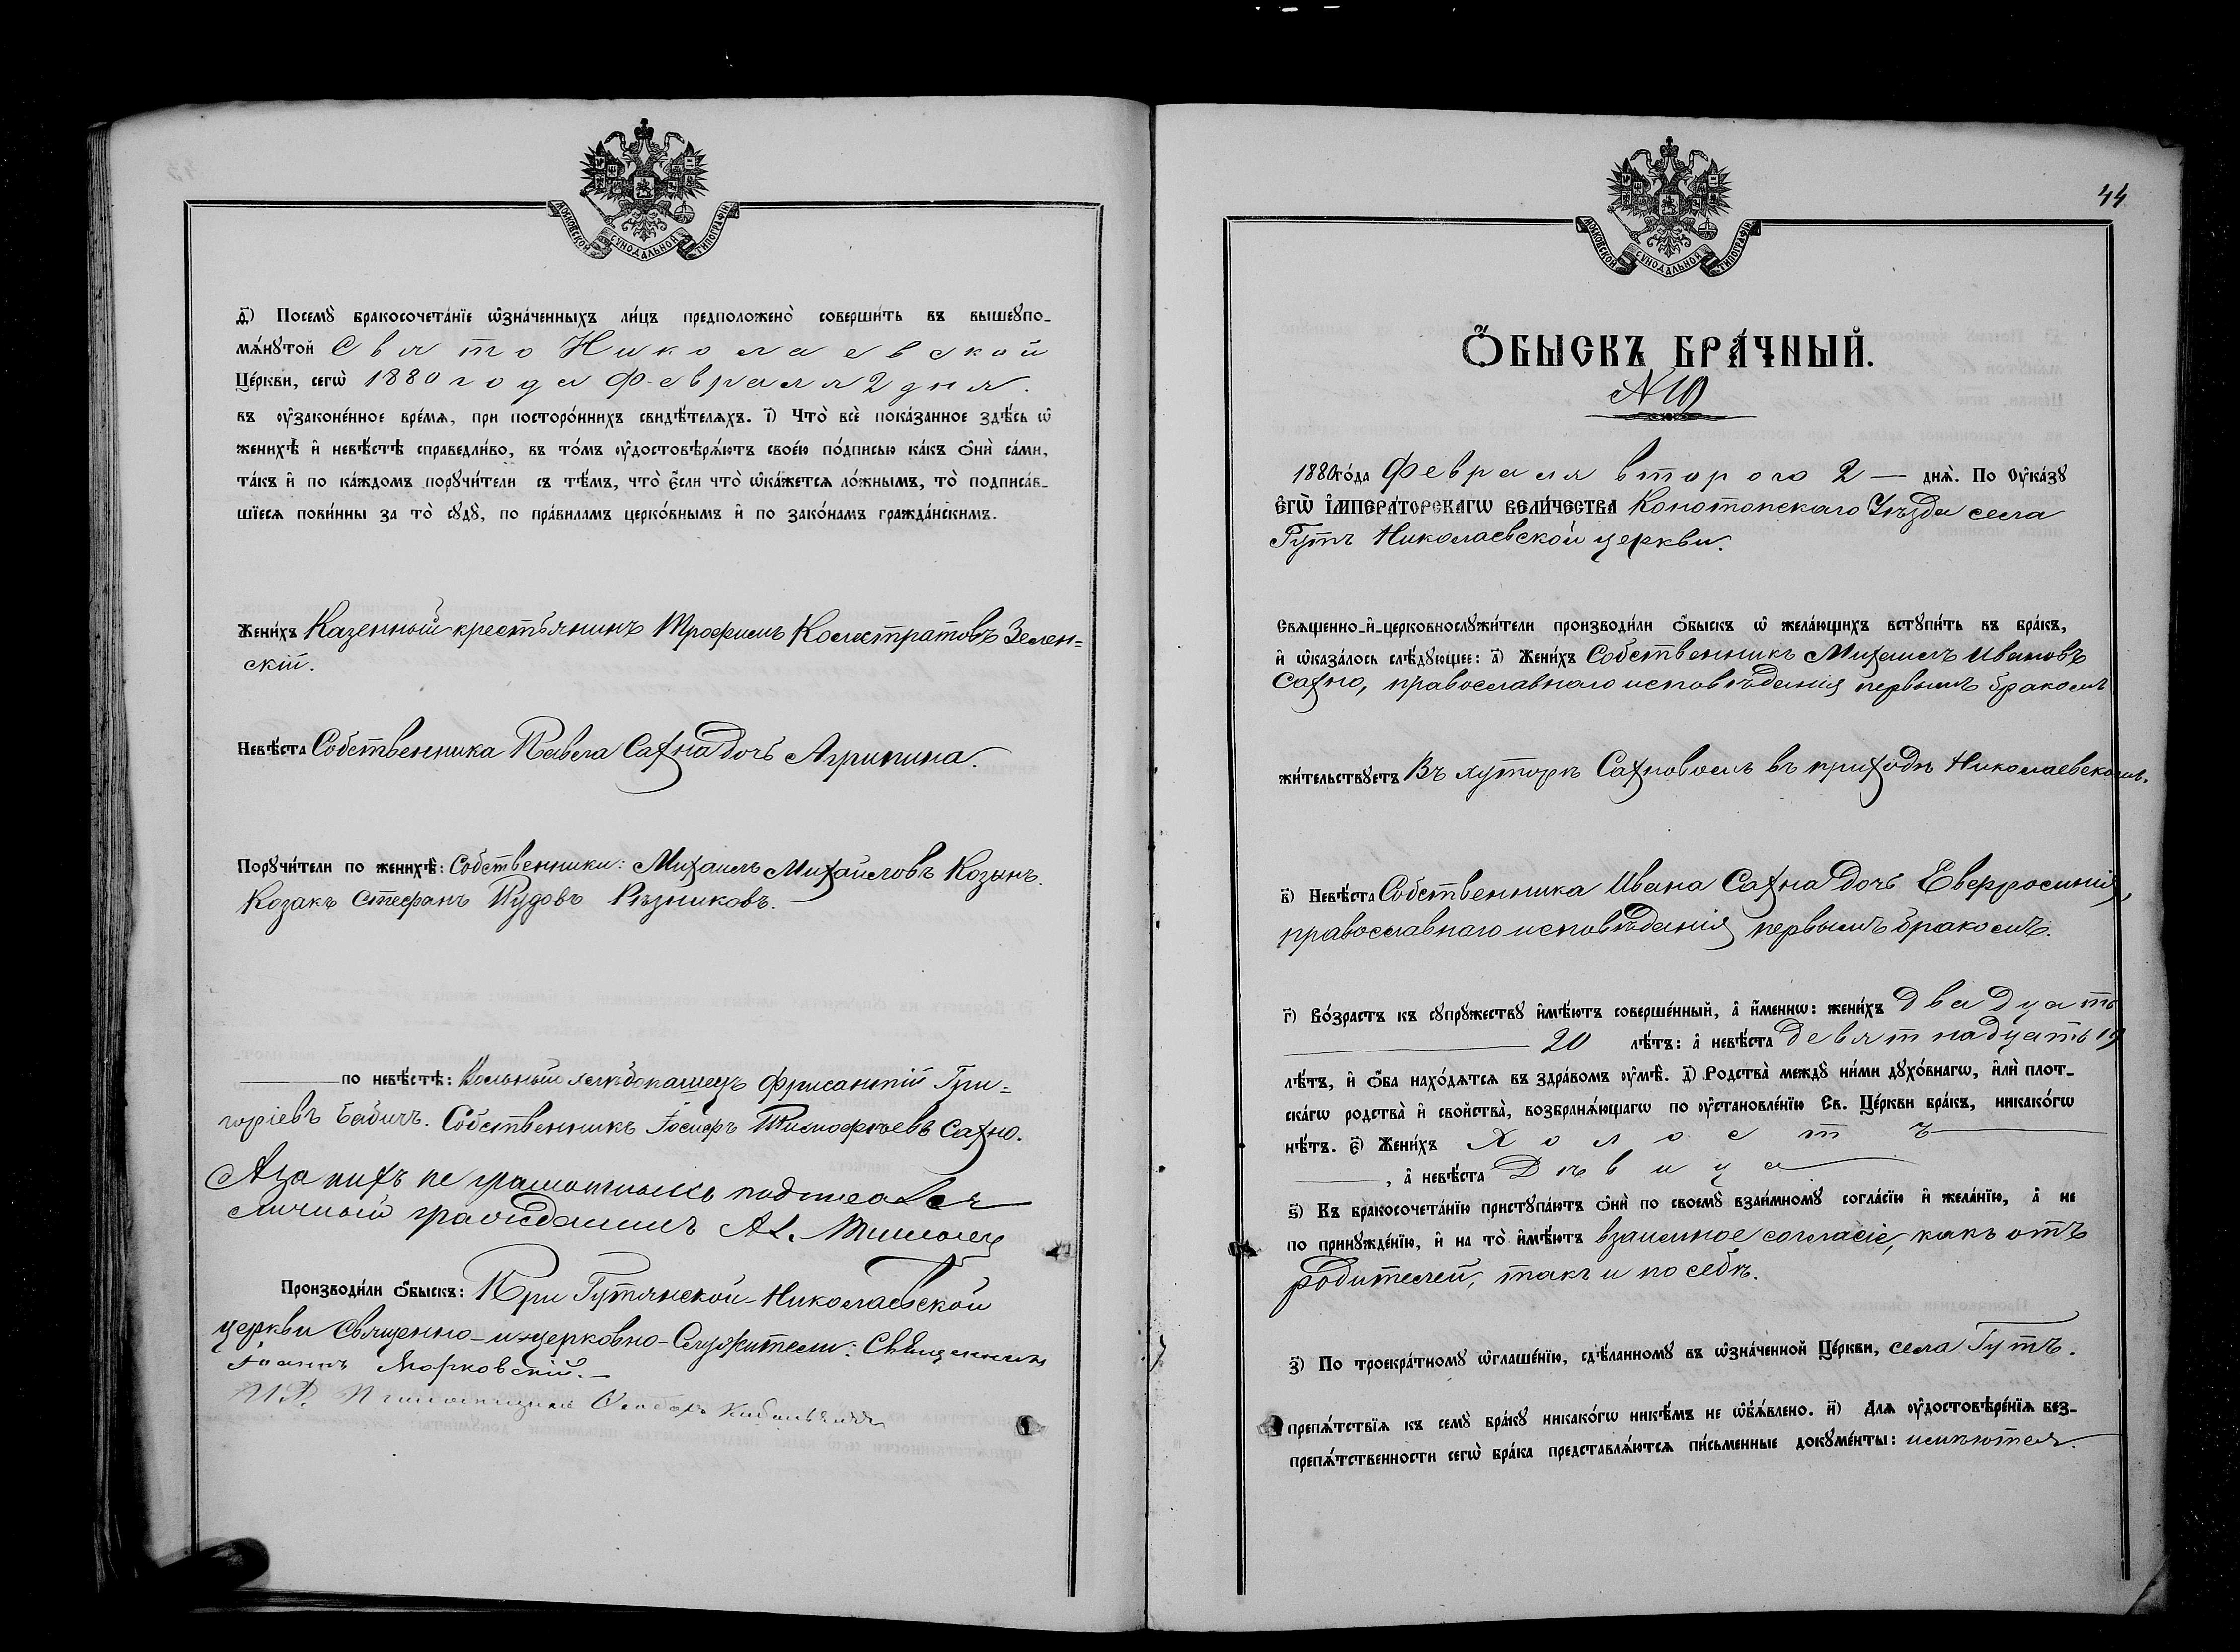 МОСКОВСКОЙ СУНОДАЛЬНОЙ ТИПОГРАФІИ
д҃) Посемꙋ̀ бракосочета́нїе ѡ҆зна́ченныхъ ли́цъ предположено̀ соверши́ть въ вышеꙋпо-
мѧ́нꙋтой Свято Николаевской
Це́ркви, сегѡ̀ 1880 года Февраля 2 дня.
въ ᲂу҆законе́нное вре́мѧ, при посторо́ннихъ свидѣ́телѧхъ. і҃) Что̀ всѐ пока́занное здѣ́сь ѡ҆
женихѣ̀ и҆ невѣ́стѣ справедли́во, въ то́мъ ᲂу҆достовѣрѧ́ютъ свое́ю по́дписью ка́къ ѻ҆нѝ са́ми,
та́къ и҆ по ка́ждомъ порꙋчи́тели съ тѣ́мъ, что̀ є҆́сли что̀ ѡ҆ка́жетсѧ ло́жнымъ, то̀ подписа́в-
шїесѧ пови́нны за то̀ сꙋдꙋ̀, по пра́виламъ церко́внымъ и҆ по зако́намъ гражда́нскимъ.
Жени́хъ Казенный крестьянинъ Трофимъ Калистратовъ Зелен=
скій.
Невѣ́ста Собственника Павла Сахна дочь Агрипина.
Порꙋчи́тели по женихѣ̀: Собственники: Михаилъ Михайловъ Козынъ.
Козакъ Стефанъ Іудовъ Рѣзниковъ.
по невѣ́стѣ: Вольный хлѣбопашецъ Гри-
горіевъ Бабичъ. Собственникъ Іосифъ Тимофѣевъ Сахно.
А за нихъ не грамотныхъ подписался
личный гражданинъ Ал.
Производи́ли ѻ҆́быскъ: При Гутянской-Николаевской
церкви Священно-и-церковно-Служители: Священникъ
Іоаннъ Марковскій.
44
МОСКОВСКОЙ СУНОДАЛЬНОЙ ТИПОГРАФІИ
Ѻ҆́БЫСКЪ БРА́ЧНЫЙ.
N 10
1880 го́да Февраля второго 2 — днѧ̀. По Оу҆ка́зꙋ
Е҆ГѠ̀ И҆МПЕРА́ТОРСКАГѠ ВЕЛИ́ЧЕСТВА Конотопскаго Уѣзда села
Гутъ Николаевской церкви.
Свѧщенно-и҆-церковнослꙋжи́тели производи́ли ѻ҆́быскъ ѡ҆ жела́ющихъ встꙋпи́ть въ бра́къ,
и҆ ѡ҆каза́лось слѣ́дꙋющее: а҃) Жени́хъ Собственникъ Михаилъ Ивановъ
Сахно, православнаго исповѣданія первымъ бракомъ
жи́тельствꙋетъ Въ хуторѣ Сахновомъ въ приходѣ Николаевскомъ.
в҃) Невѣ́ста Собственника Ивана Сахна дочь Евфросинія,
православнаго исповѣданія первымъ бракомъ.
г҃) Во́зрастъ къ сꙋпрꙋ́жествꙋ и҆мѣ́ютъ соверше́нный, а҆ и҆́меннѡ: жени́хъ двадцать
20 лѣ́тъ: а҆ невѣ́ста девятнадцать 19
лѣ́тъ, и҆ ѻ҆́ба нахо́дѧтсѧ въ здра́вомъ ᲂу҆мѣ̀. д҃) Родства̀ междꙋ̀ ни́ми дꙋхо́внагѡ, и҆лѝ плот-
ска́гѡ родства̀ и҆ сво́йства, возбранѧ́ющагѡ по ᲂу҆становле́нїю Св. Це́ркви бра́къ, никако́гѡ
нѣ́тъ. є҃) Жени́хъ Холостъ
, а҆ невѣ́ста Дѣвица
ѕ҃) Къ бракосочета́нїю пристꙋпа́ютъ ѻ҆нѝ по своемꙋ̀ взаи́мномꙋ согла́сїю и҆ жела́нїю, а҆ не
по принꙋжде́нїю, и҆ на то̀ и҆мѣ́ютъ взаимное согласіе, какъ отъ
родителей, такъ и по себѣ.
з҃) По троекра́тномꙋ ѡ҆глаше́нїю, сдѣ́ланномꙋ въ ѡ҆зна́ченной Це́ркви, села Гутъ.
препѧ́тствїѧ къ семꙋ̀ бра́кꙋ никако́гѡ никѣ́мъ не ѡ҆б̾ѧ́влено. и҃) Длѧ ᲂу҆достовѣре́нїѧ без-
препѧ́тственности сегѡ̀ бра́ка представлѧ́ютсѧ пи́сьменные докꙋме́нты: имѣются.